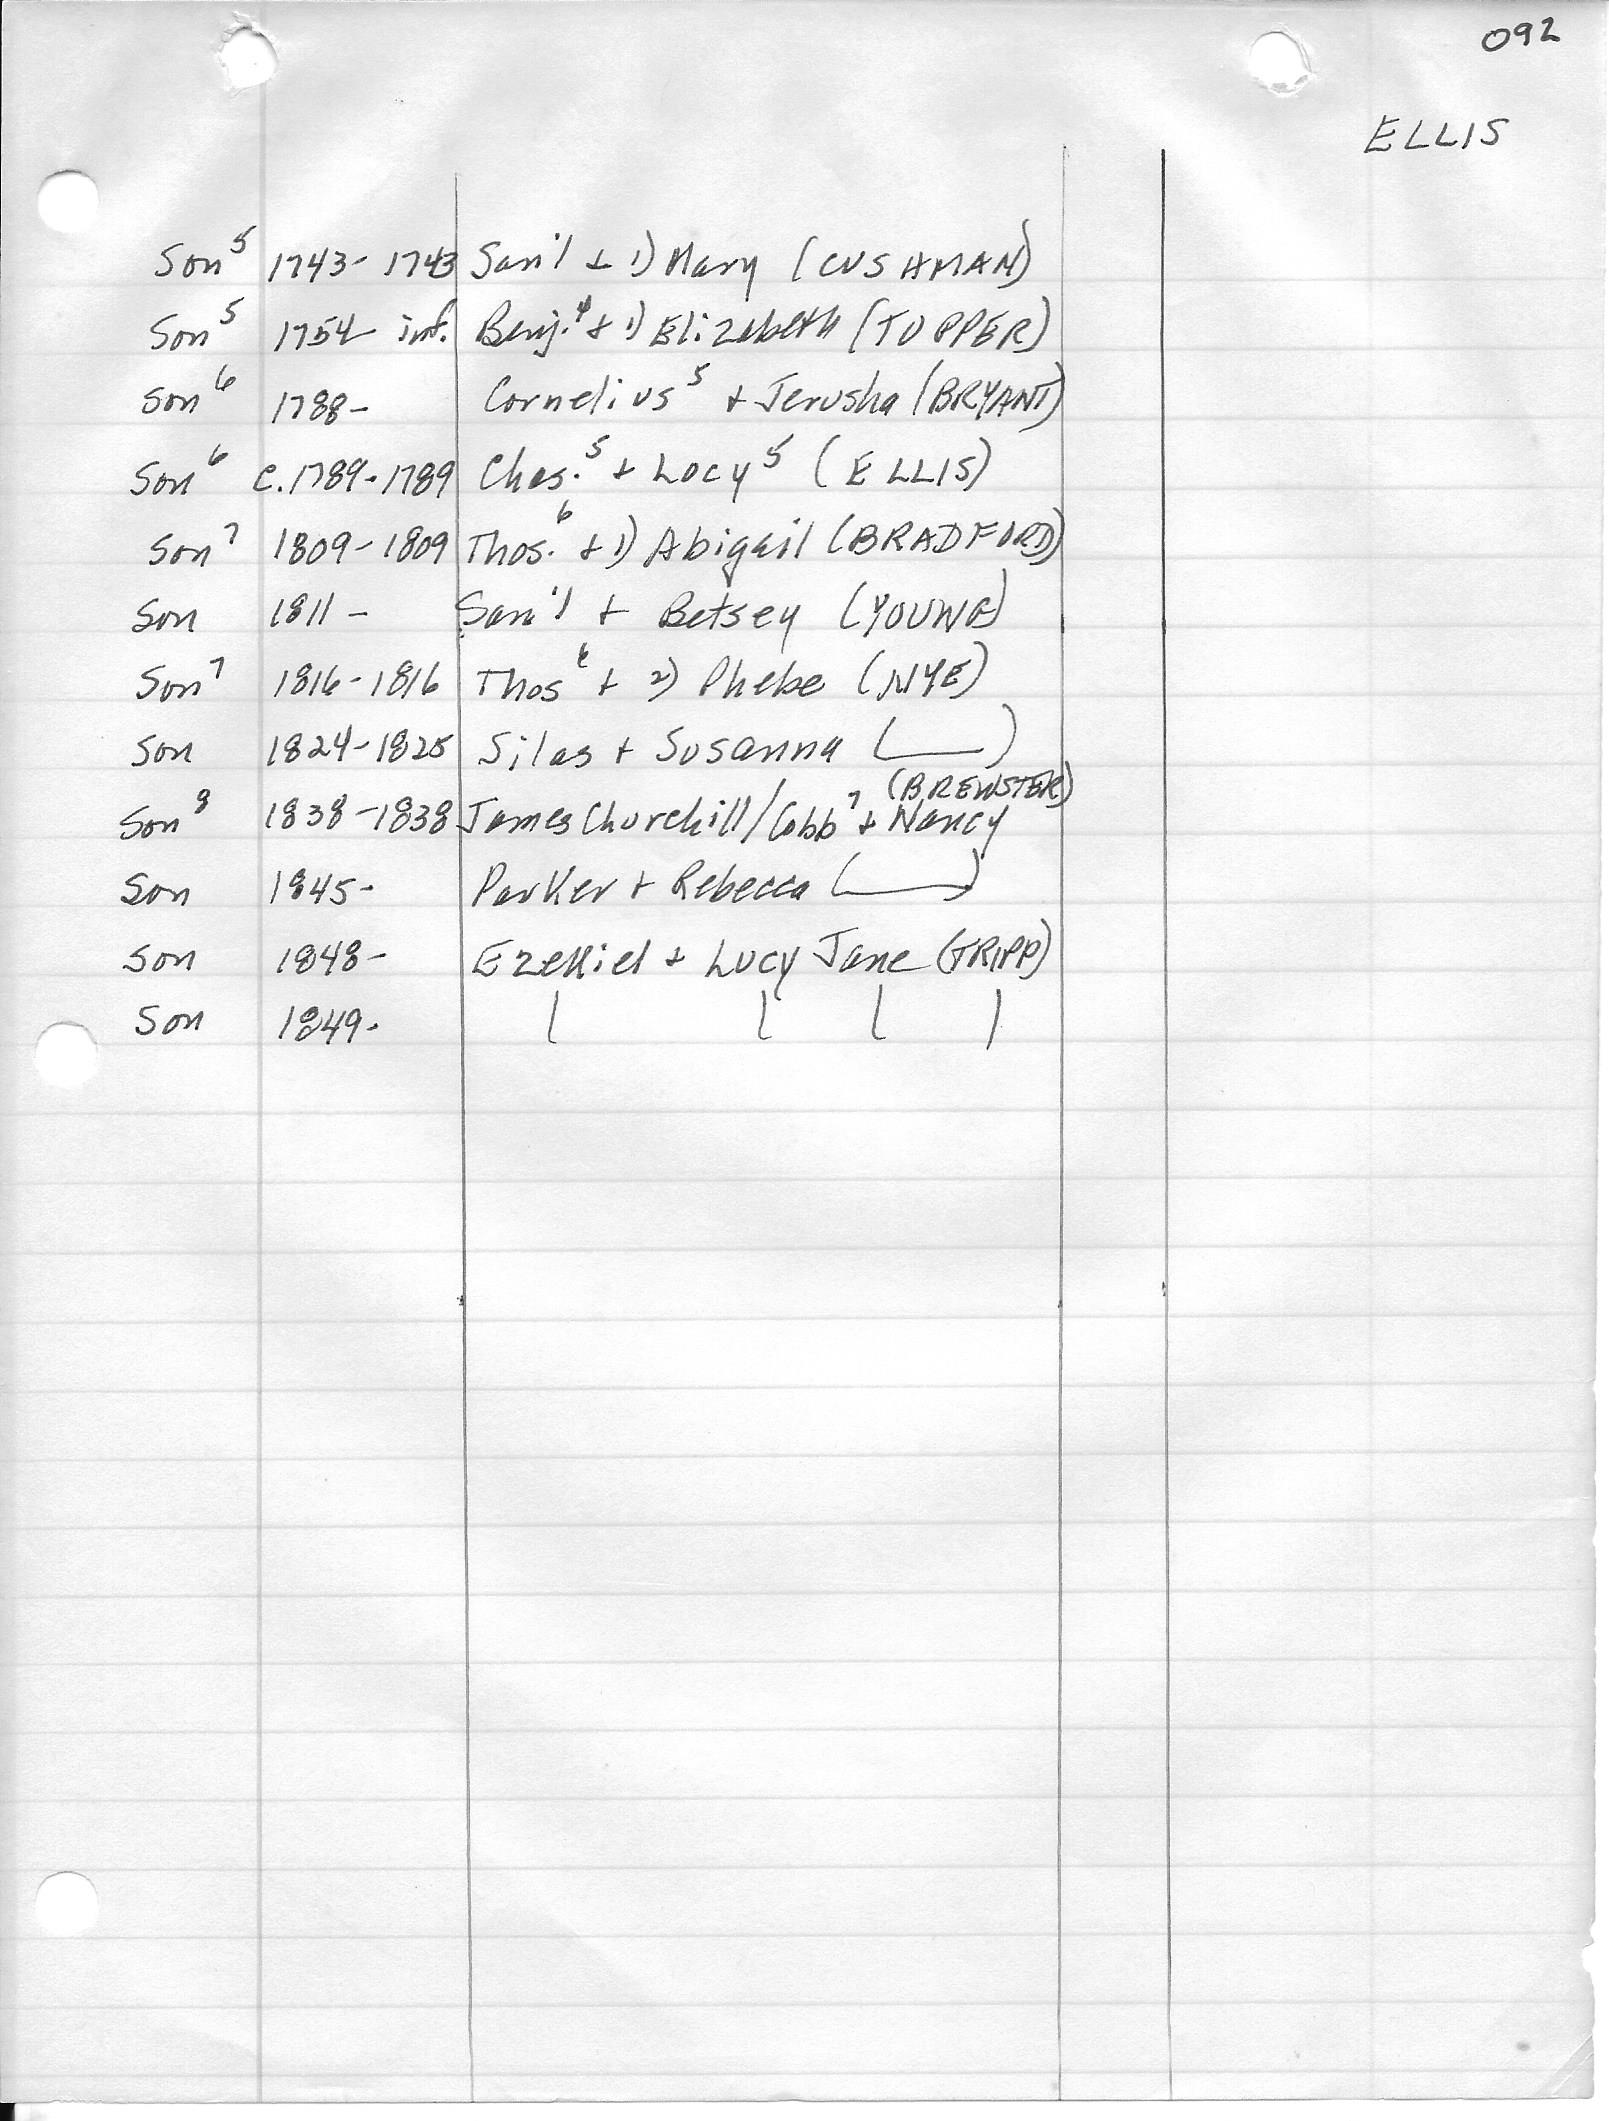 092
ELLIS
Son⁵ 1743-1743 Sam'l + 1) Mary (CUSHMAN)
Son⁵ 1754- inf. Benj.⁴ + 1) Elizabeth (TUPPER)
Son⁶ 1788- Cornelius⁵ + Jerusha (BRYANT)
Son⁶ c.1789-1789 Chas.⁵ + Lucy⁵ (ELLIS)
Son⁷ 1809-1809 Thos.⁶ + 1) Abigail (BRADFORD)
Son 1811- Sam'l + Betsey (YOUNG)
Son⁷ 1816-1816 Thos⁶ + 2) Phebe (NYE)
Son 1824-1825 Silas + Susanna (___)
(BREWSTER)
Son⁸ 1838-1838 James Churchill/Cobb⁷ + Nancy
Son 1845- Parker + Rebecca (___)
Son 1848- Ezekiel + Lucy Jane (TRIPP)
Son 1849- | | | |